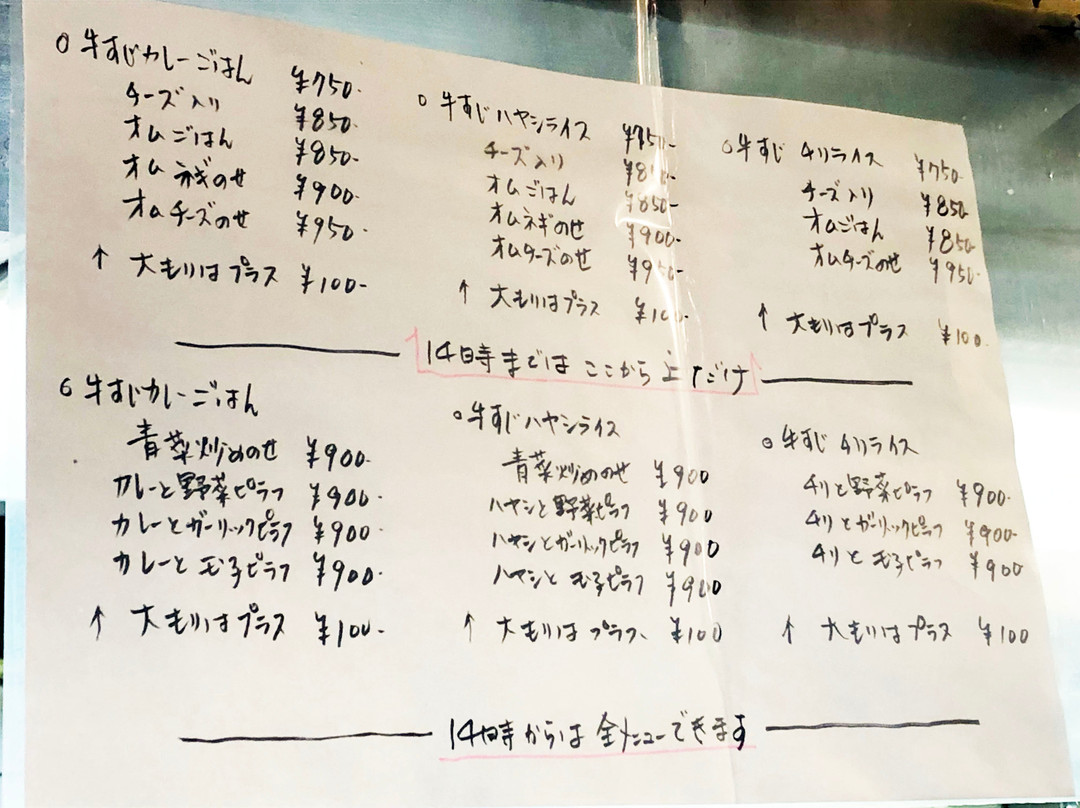 ○牛すじカレーごはん ¥750-
チーズ入り ¥850-
オムごはん ¥850-
オムネギのせ ¥900-
オムチーズのせ ¥950-
↑ 大もりはプラス ¥100-
○牛すじハヤシライス ¥750-
チーズ入り ¥850-
オムごはん ¥850-
オムネギのせ ¥900-
オムチーズのせ ¥950-
↑ 大もりはプラス ¥100-
○牛すじ チリライス ¥750-
チーズ入り ¥850-
オムごはん ¥850-
オムチーズのせ ¥950-
↑ 大もりはプラス ¥100-
14時までは ここから上だけ
○牛すじカレーごはん
青菜炒めのせ ¥900-
カレーと野菜ピラフ ¥900-
カレーとガーリックピラフ ¥900-
カレーと玉子ピラフ ¥900-
↑ 大もりはプラス ¥100-
○牛すじハヤシライス
青菜炒めのせ ¥900
ハヤシと野菜ピラフ ¥900
ハヤシとガーリックピラフ ¥900
ハヤシと玉子ピラフ ¥900
↑ 大もりはプラス ¥100
○牛すじ チリライス
チリと野菜ピラフ ¥900-
チリとガーリックピラフ ¥900-
チリと玉子ピラフ ¥900
↑ 大もりはプラス ¥100
14時からは 全メニューできます